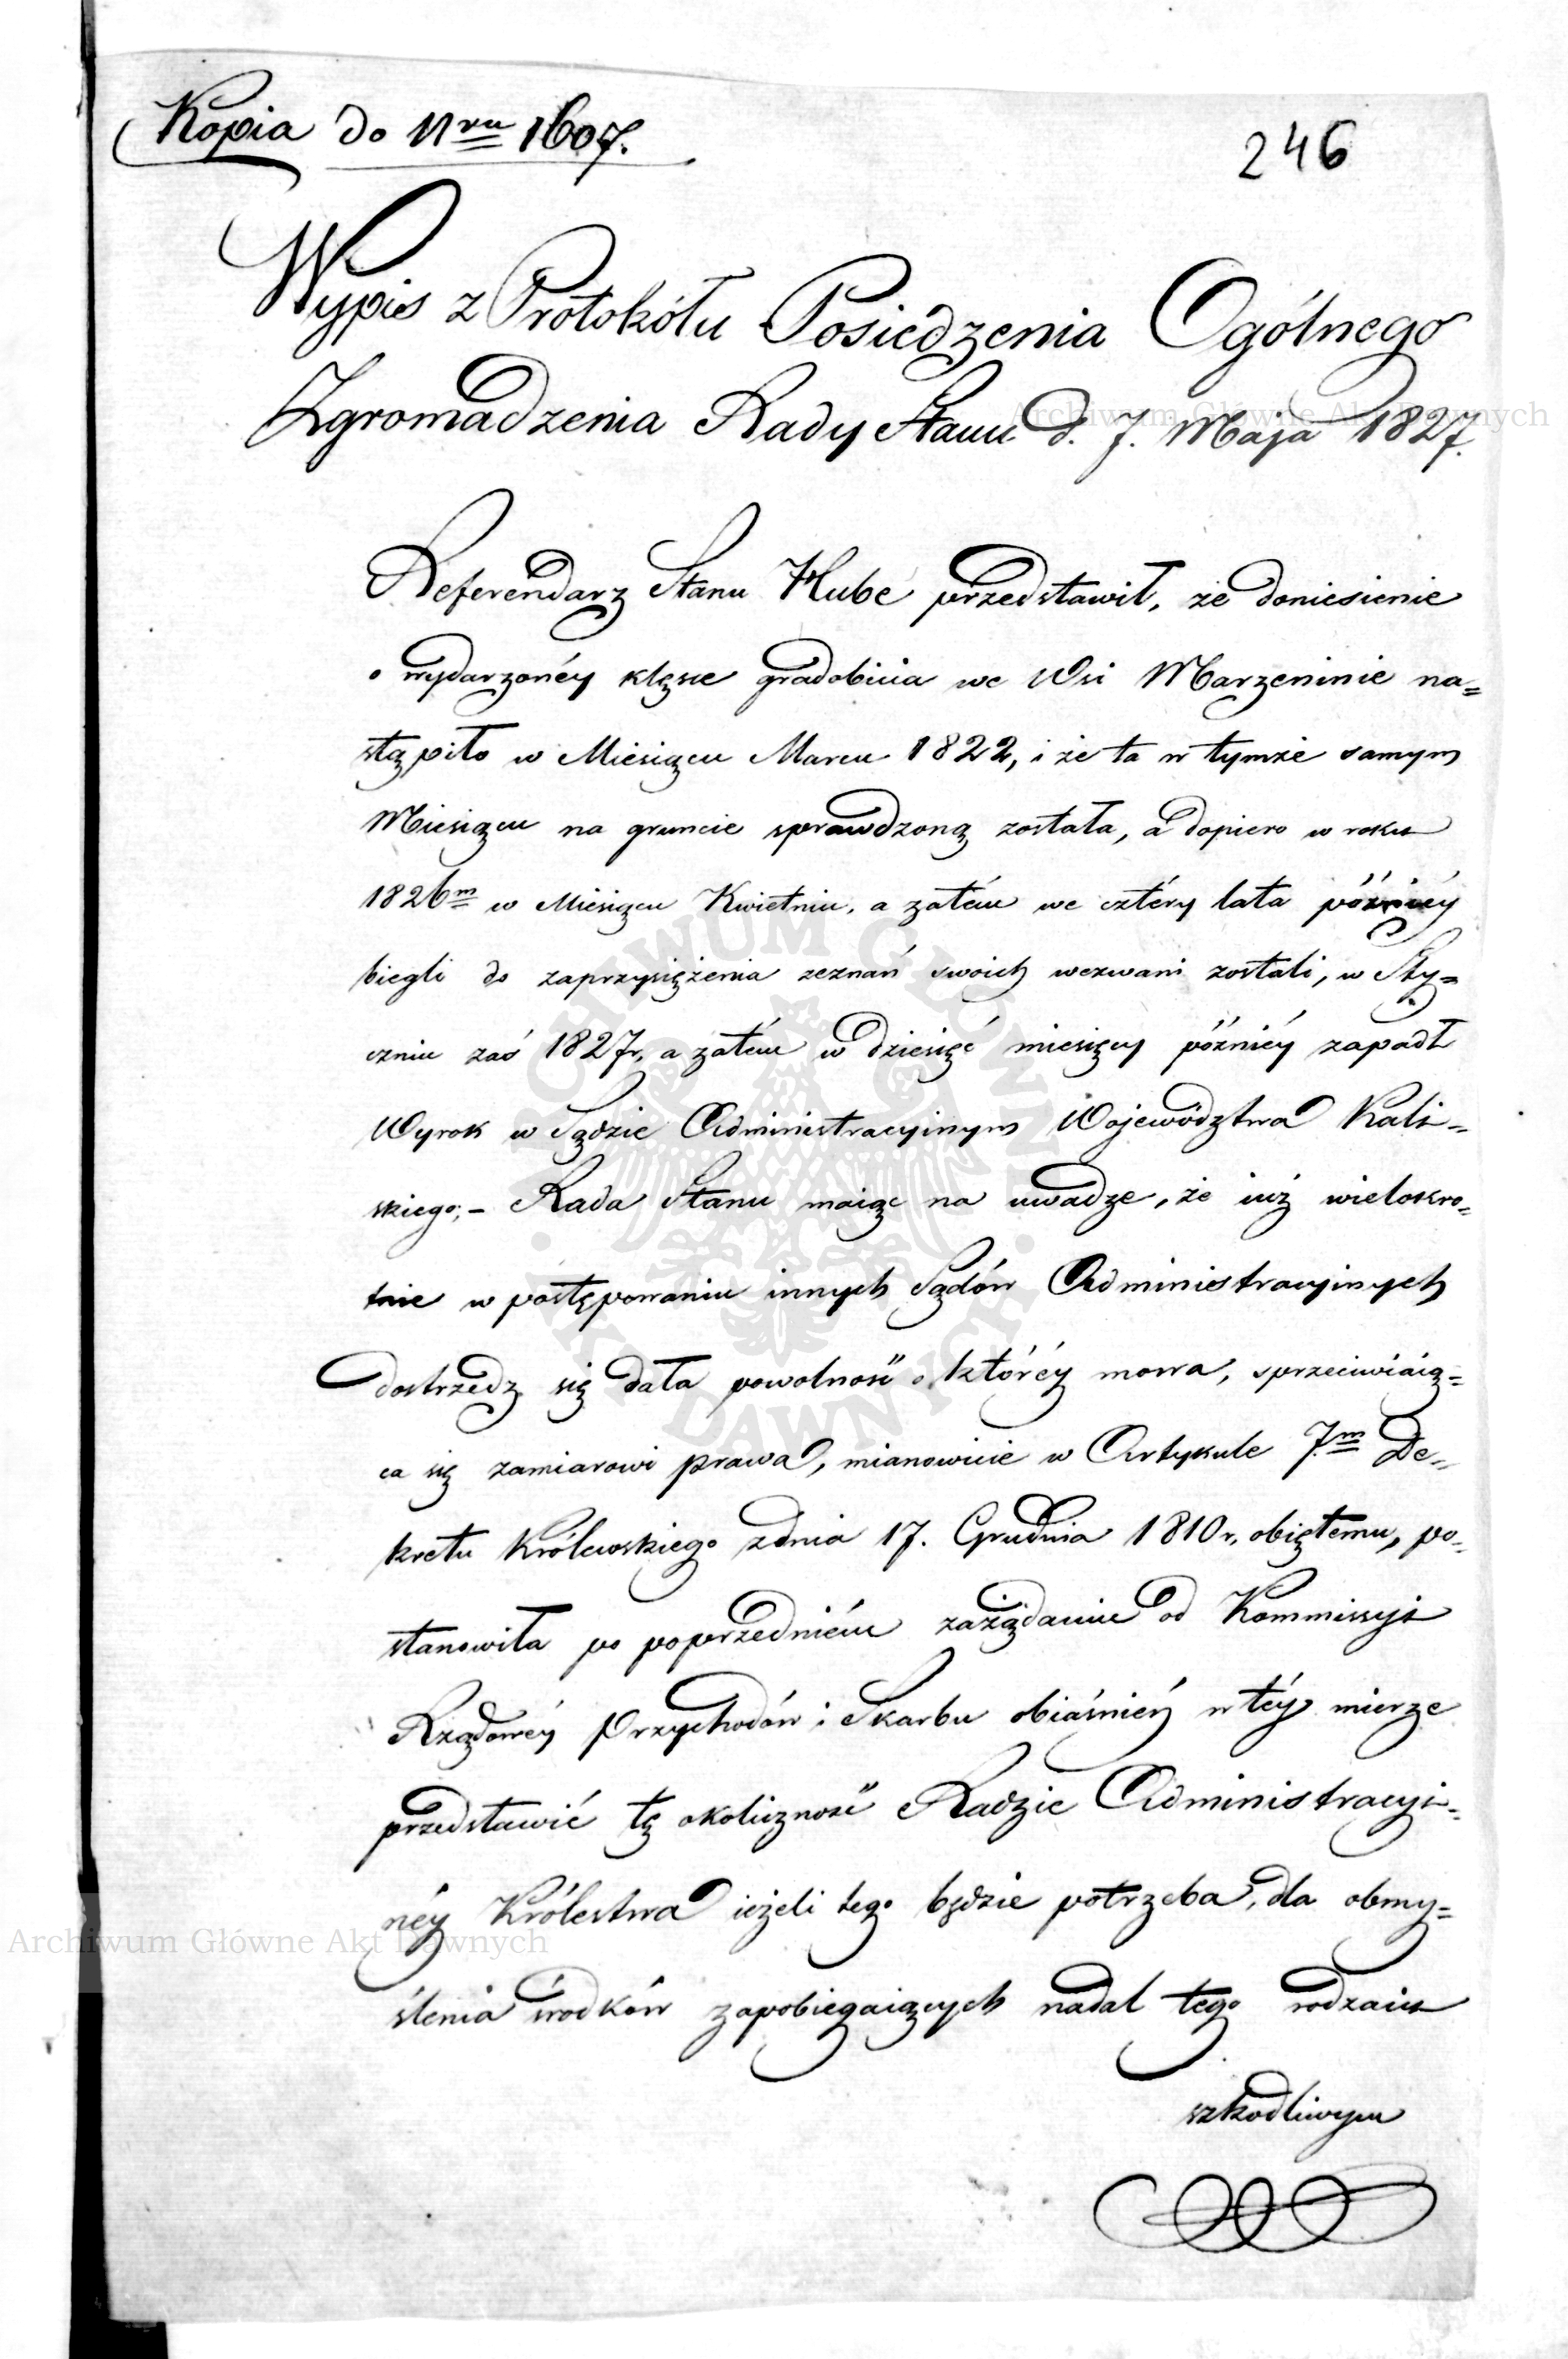 Kopia do Nru 1607.
246
Wypis z Protokółu Posiedzenia Ogólnego
Zgromadzenia Rady Stanu d. 7. Maja 1827.
Referendarz Stanu Hube przedstawił, że doniesienie
o wydarzonéy klęsce gradobicia we Wsi Marzeninie na=
stąpiło w Miesiącu Marcu 1822, i że ta w tymże samym
Miesiącu na gruncie sprawdzoną została, a dopiero w roku
1826m w Miesiącu Kwietniu, a zatém we cztéry lata późniéy
biegli do zaprzysiężenia zeznań swoich wezwani zostali, w Sty=
czniu zaś 1827r, a zatém w dziesięć miesięcy późniéy zapadł
Wyrok w Sądzie Administracyinym Województwa Kali=
skiego; – Rada Stanu maiąc na uwadze, że iuż wielokro=
tnie w postępowaniu innych Sądów Administracyinych
dostrzedz się dała powolność o któréy mowa, sprzeciwiaią=
ca się zamiarowi prawa, mianowicie w Artykule 7m De=
kretu Królewskiego z dnia 17. Grudnia 1810r, obiętemu, po=
stanowiła po poprzedniém zażądaniu od Kommissyi
Rządowéy Przychodów i Skarbu obiaśnień w téy mierze
przedstawić tę okoliczność Radzie Administracyi=
néy Królestwa ieżeli tego będzie potrzeba, dla obmy=
ślenia środków zapobiegaiących nadal tego rodzaiu
szkodliwym
Archiwum Główne Akt Dawnych
Archiwum Główne Akt Dawnych
ARCHIWUM GŁÓWNE · AKT DAWNYCH ·